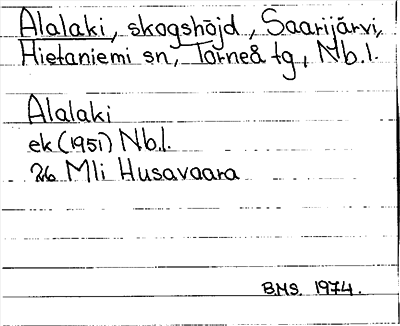 Alalaki, skogshöjd, Saarijärvi,
Hietaniemi sn, Torneå tg, Nb.l.
Alalaki
ek (1951) Nb.l.
26 Mli Husavaara
B.M.S. 1974.